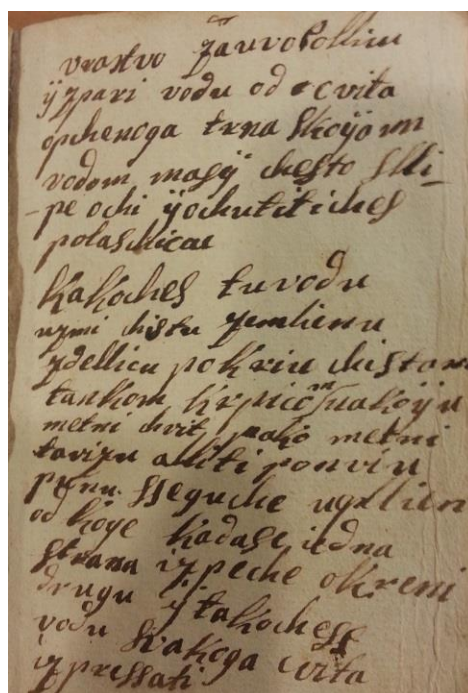 vrastvo za uvobollinu
ÿzpari vodu od cvita
opchenoga trna skoÿom
vodom masÿ chesto slli-
-pe ochi ÿochutitiches
polaschicae
Kakoches tu vodu
uzmi chistu zemlienu
zdellicu pokriu chistom
tankom krpicom nakoÿu
metni cvit, pako metni
tavizu alliti ponvin
punu sseguche uglien
od koge kadase iedna
strana izpeche okreni
drugu ÿ takochess
vodu svakoga cvita
izpressati